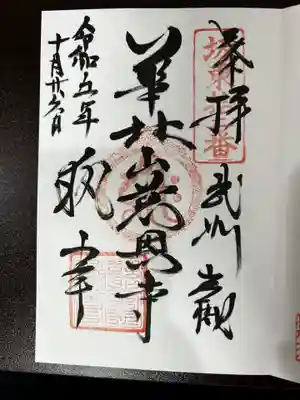 坂東十二番
奉拝 武州岩槻
華林山慈恩寺
令和五年
十月廿六日